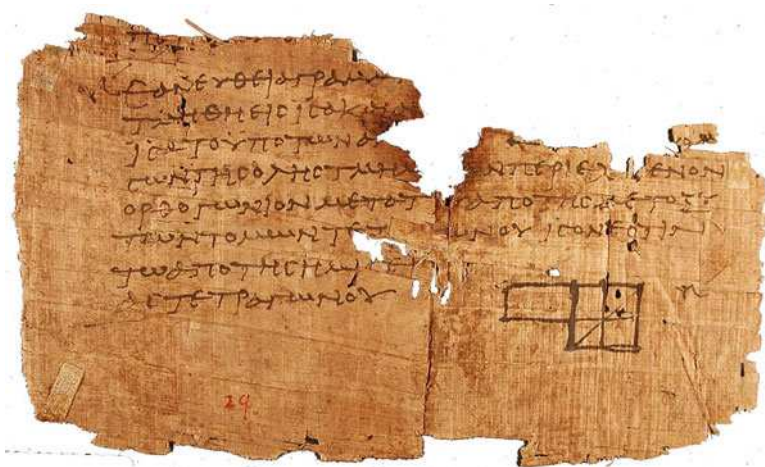 ΕΑΝ ΕΥΘΕΙΑ ΓΡΑΜΜ
ΤΜΗΘΗ ΕΙϹ ΙϹΑ ΚΑΙ Α
ΙϹΑ ΤΟ ΥΠΟ ΤΩΝ Α
ϹΩΝ ΤΗϹ ΟΛΗϹ ΤΜΗ ΩΝ ΠΕΡΙΕΧ ΜΕΝΟΝ
ΟΡΘΟΓΩΝΙΟΝ ΜΕΤΑ ΤΟΥ ΑΠΟ ΤΗϹ ΜΕΤΟΞΥ
ΤΩΝ ΤΟΜΩΝ ΤΕΤ ΩΝΟΥ ΙϹΟΝ ΕϹΤΙΝ
ΤΩ ΑΠΟ ΤΗϹ ΗΜΙϹ
ΑϹ ΤΕΤΡΑΓΩΝΟΥ
29